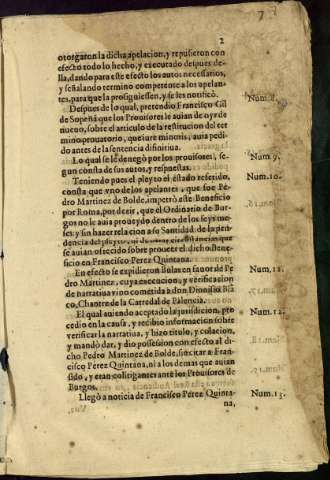 2
otorgaron la dicha apelacion, y repusieron con
efecto todo lo hecho, y executado despues de-
lla, dando para este efecto los autos necessarios,
y señalando termino competente a los apelan-
tes, para que la prosiguiessen, y se les notificò.
Despues de lo qual, pretendio Francisco Gil Num.8.
de Sopeña que los Prouisores le auian de oyr de
nueuo, sobre el articulo de la restitucion del ter
mino prouatorio, que iure minoris, auia pedi-
do antes de la sentencia difinitiua.
Lo qual se le denegò por los prouisores, se- Num.9.
gun consta de sus autos, y respuestas.
Teniendo pues el pleyto el estado referido, Num.10.
consta que vno de los apelantes, que fue Pe-
dro Martinez de Bolde, impetrò este Beneficio
por Roma, por dezir, que el Ordinario de Bur-
gos no le auia proueydo dentro de los seys me-
ses: y sin hazer relacion a su Santidad de la pen-
dencia del pleyto, ni de
se auian ofrecido sobre prouer el dicho Bene-
ficio en Francisco Perez Quintana.
En efecto se expidieron Bulas en fauor de Pe Num.11.
dro Martinez, cuya execucion, y verificacion
de narratiua vino cometida a don Dionisio Blā
co, Chantre de la Catredal de Palencia.
El qual auiendo aceptado la jurisdicion, pro Num.12.
cedio en la causa, y recibio informacion sobre
verificar la narratiua, y hizo titulo, y colacion,
y mandò dar, y dio possesion con efecto al di-
cho Pedro Martinez de Bolde, sin citar a Fran-
cisco Perez Quintana, ni a los demas que auian
sido, y eran colitigantes ante los Prouisores de
Burgos.
Llegò a noticia de Francisco Perez Quinta- Num.13.
na,